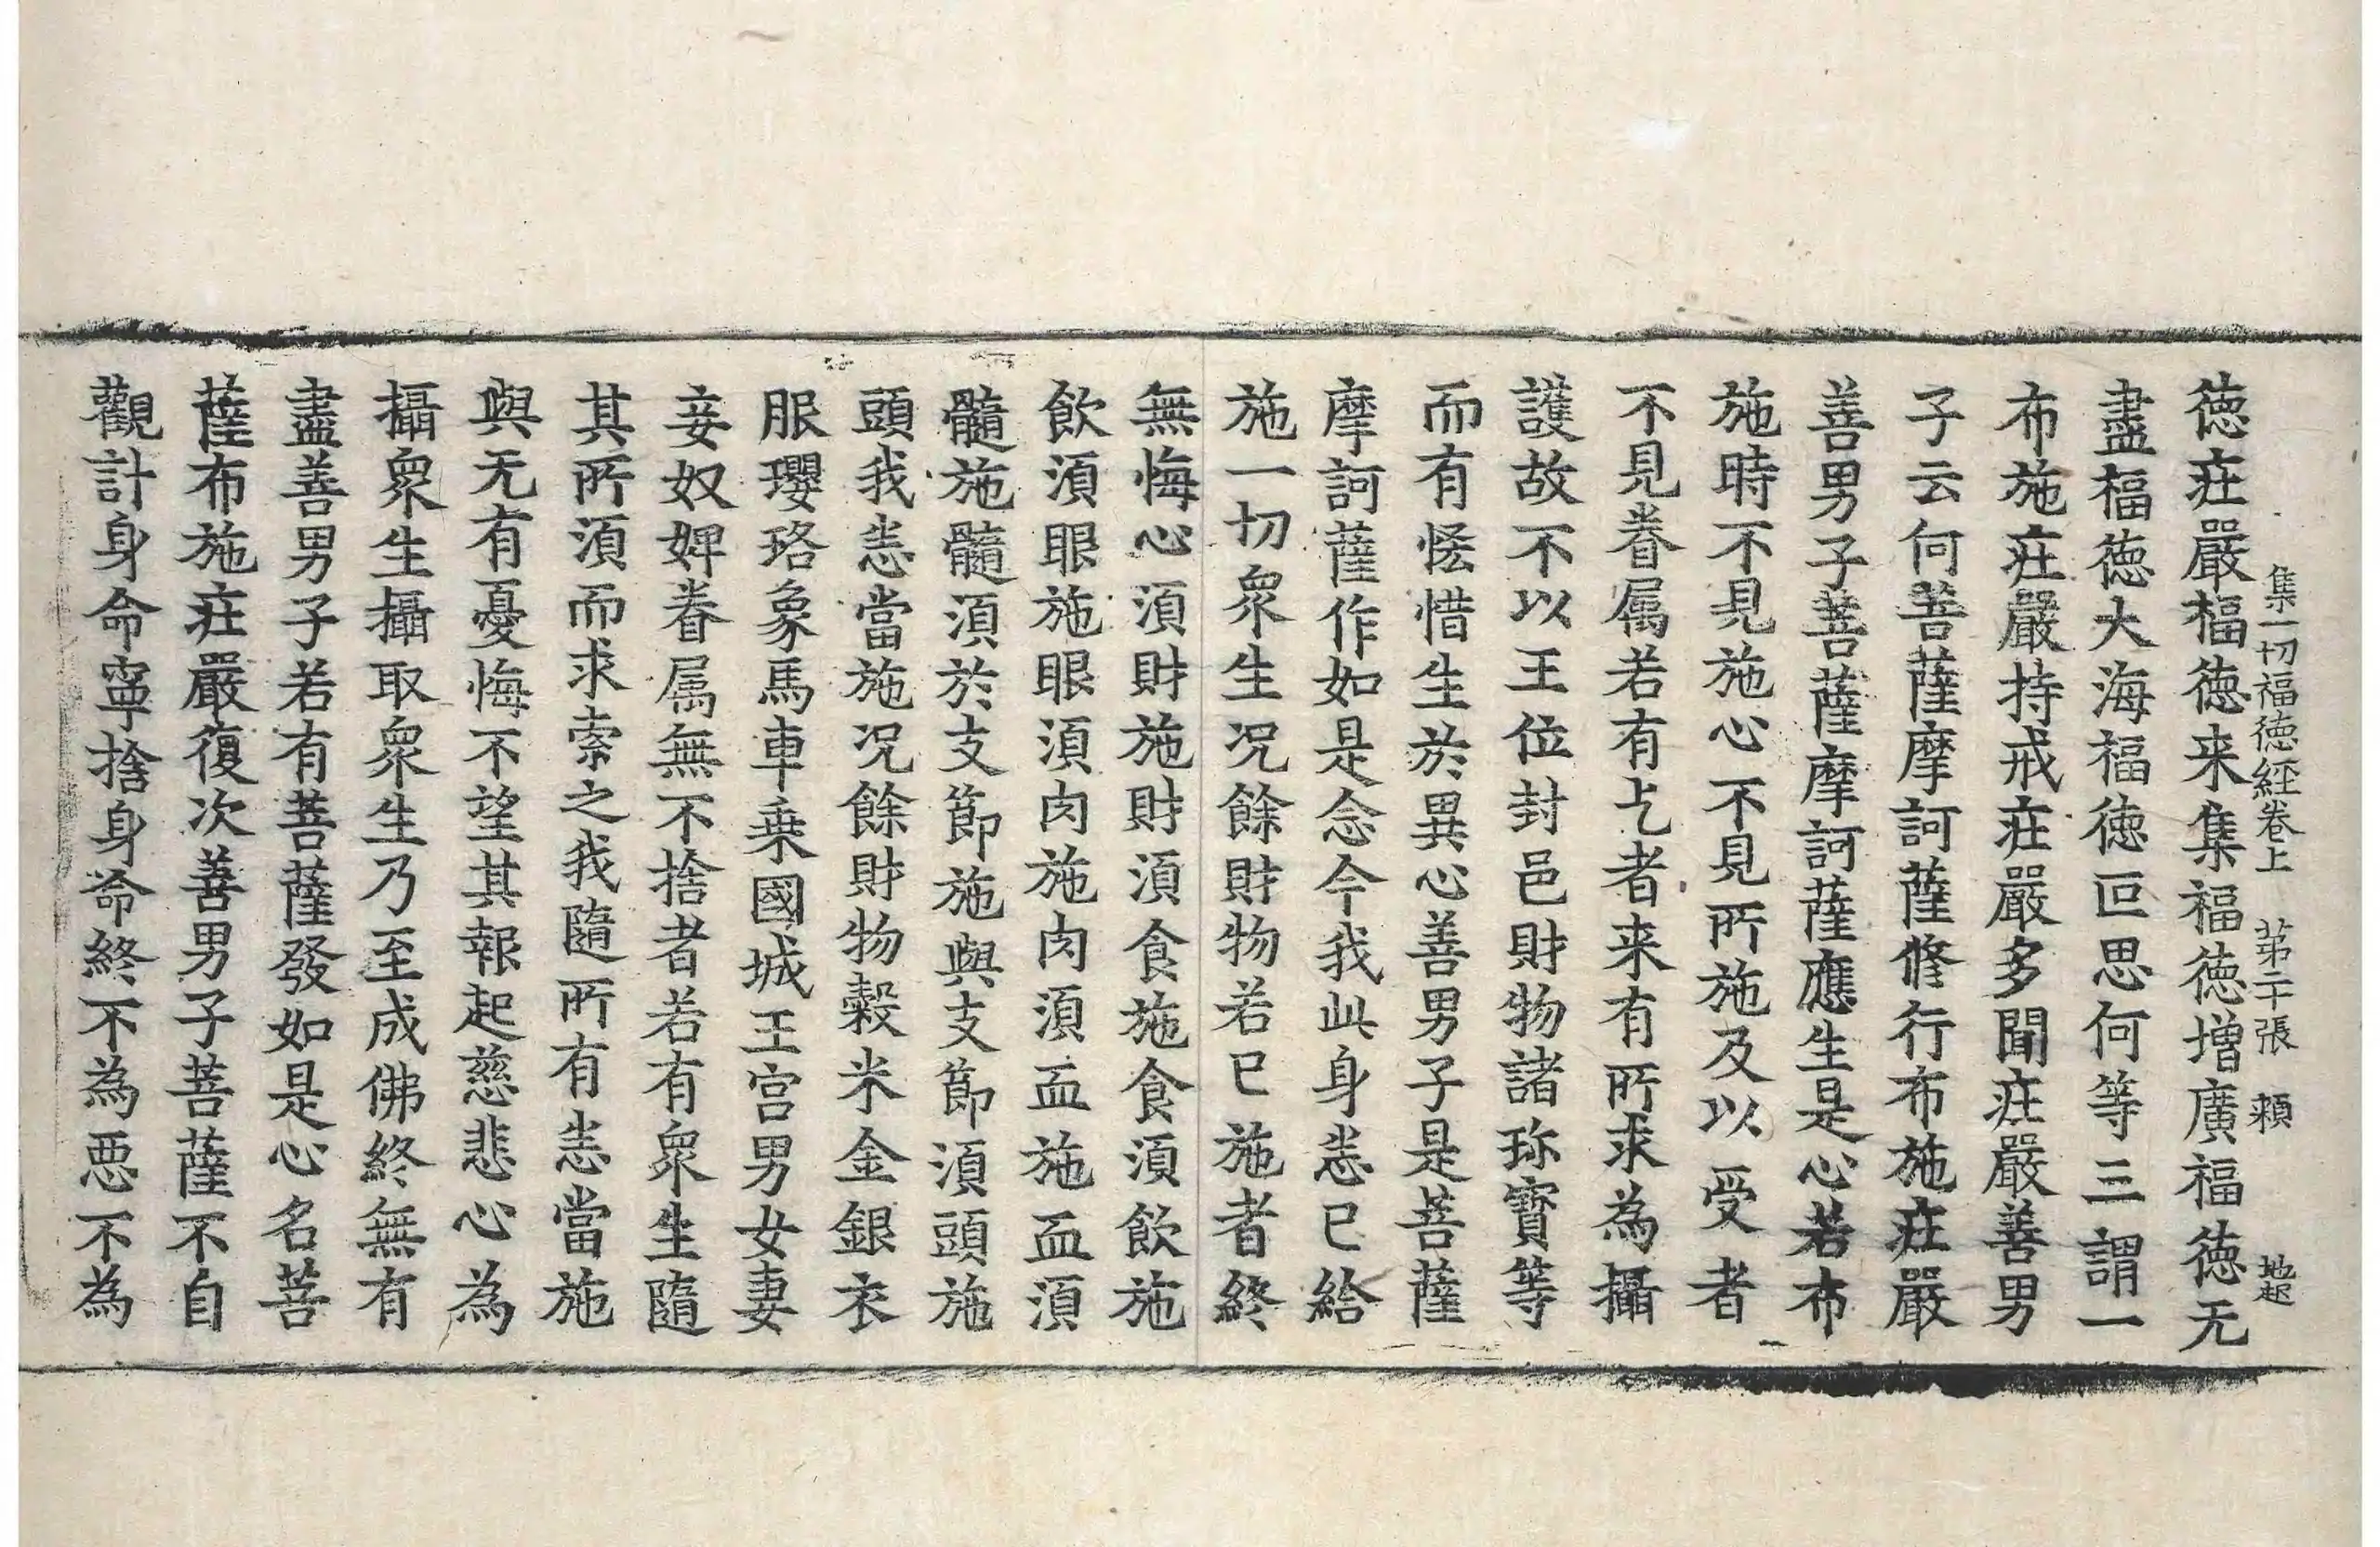 集一切福徳經卷上　第二十張　頼　地起
徳疰嚴福徳来集福徳增廣福徳无
盡福徳大海福徳叵思何等三謂一
布施疰嚴持戒疰嚴多聞疰嚴善男
子云何菩薩摩訶薩修行布施疰嚴
善男子菩薩摩訶薩應生是心若布
施時不見施心不見所施及以受者
不見眷属若有乞者来有所求為攝
護故不以王位封邑財物諸珎寳等
而有恡惜生於異心善男子是菩薩
摩訶薩作如是念今我此身恚已給
施一切衆生况餘財物若已施者終
無悔心湏財施財湏食施食湏飲施
飲湏眼施眼湏肉施肉湏血施血湏
髓施髓湏於支節施與支節湏頭施
頭我恚當施况餘財物穀米金銀衣
服瓔珞象馬車乗國城王宫男女妻
妾奴婢眷属無不捨者若有衆生隨
其所湏而求索之我隨所有恚當施
與无有憂悔不望其報起慈悲心為
攝衆生攝取衆生乃至成佛終無有
盡善男子若有菩薩發如是心名菩
薩布施疰嚴復次善男子菩薩不自
觀計身命寧捨身命終不為悪不為